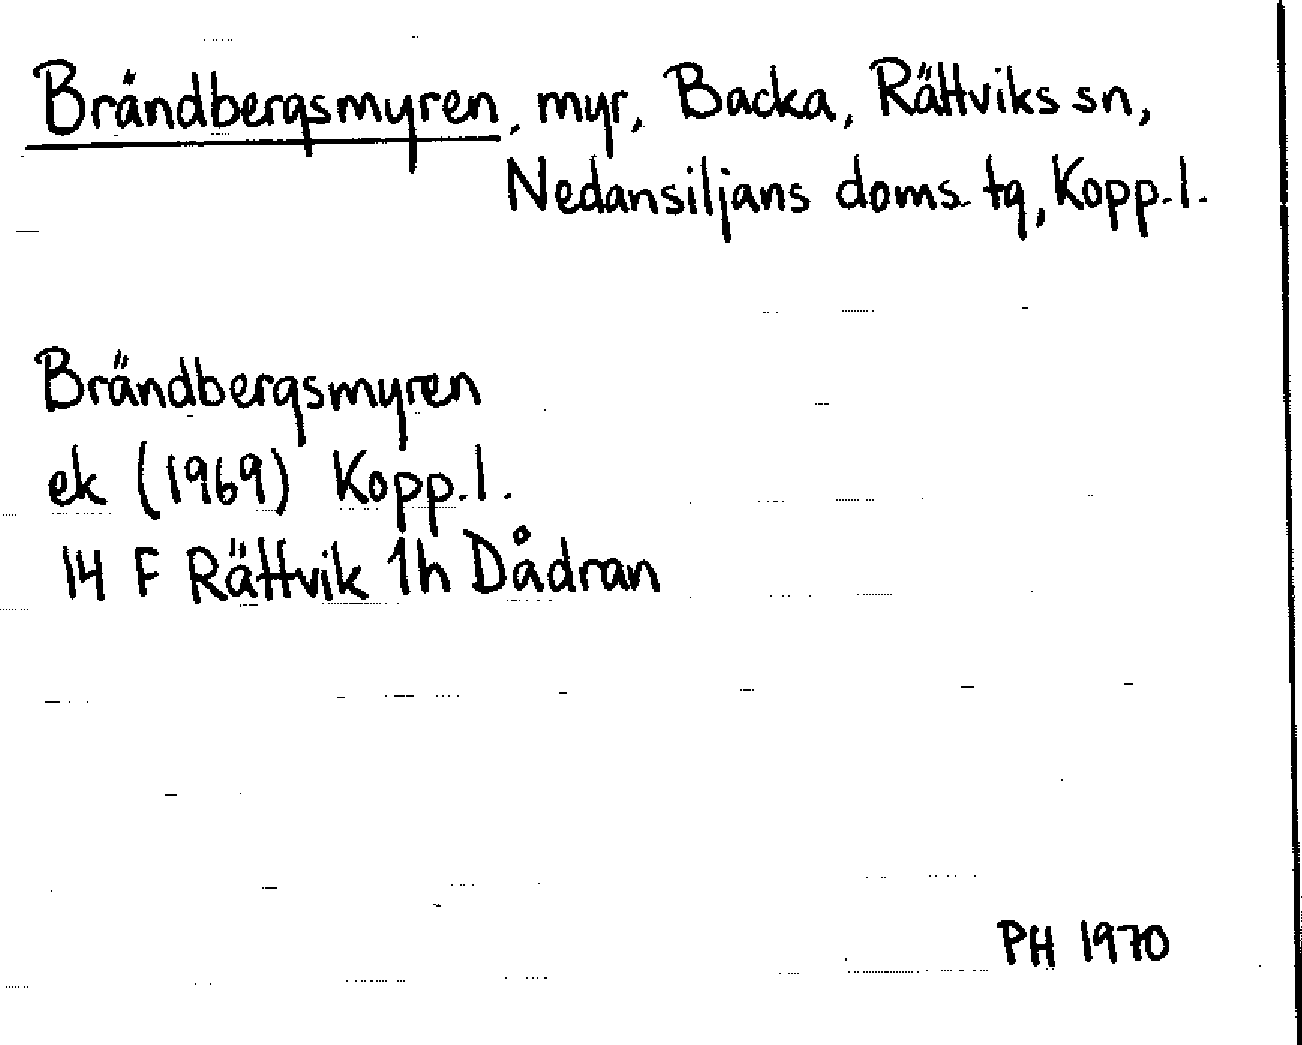 Brändbergsmyren, myr, Backa, Rättviks sn,
Nedansiljans doms. tg, Kopp.l.
Brändbergsmyren
ek (1969) Kopp.l.
14 F Rättvik 1h Dådran
PH 1970